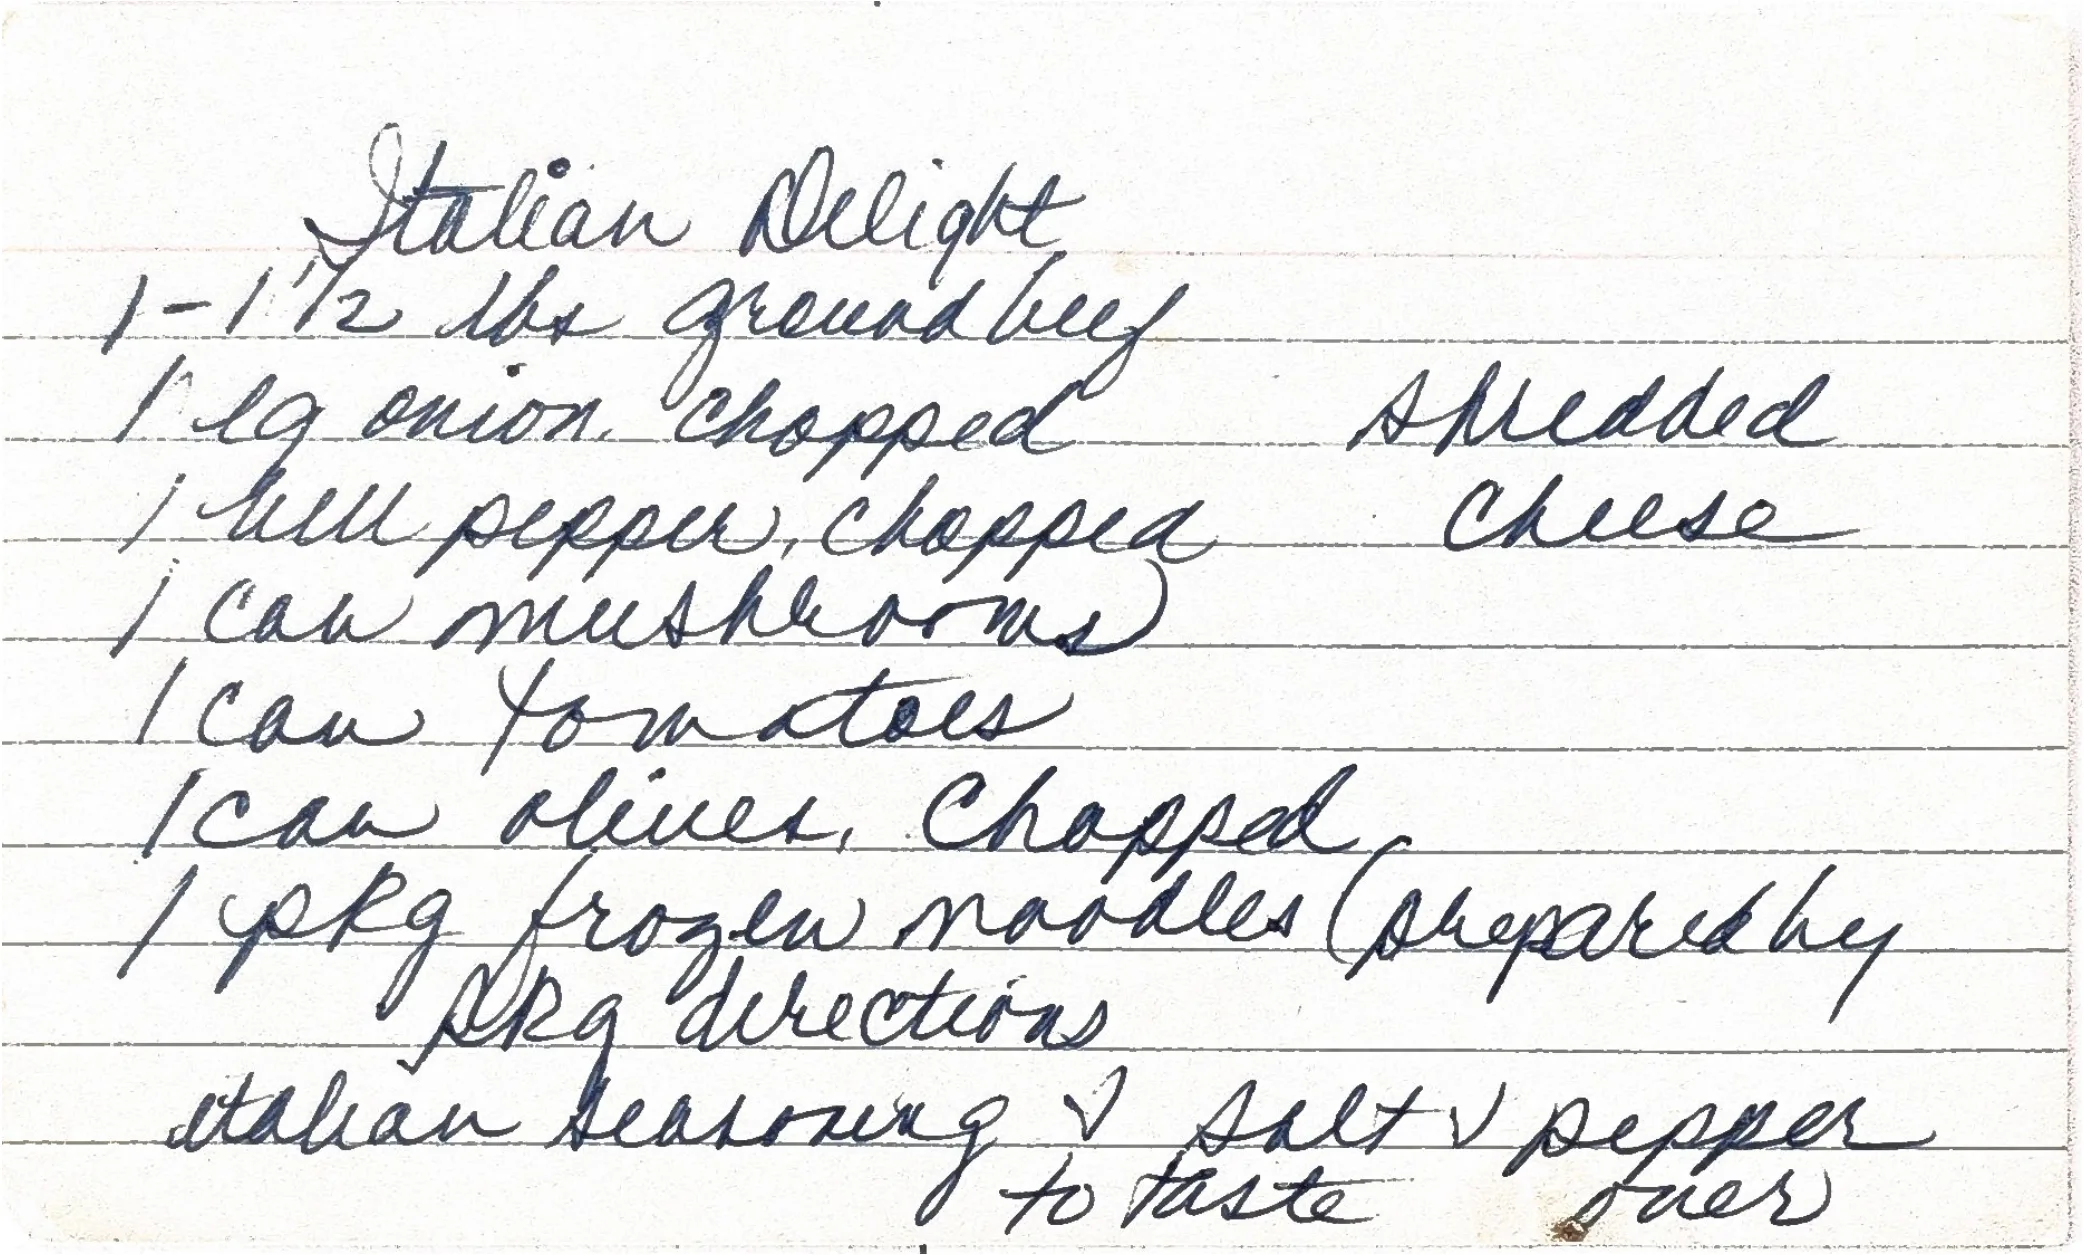 Italian Delight
1-1 1/2 lbs ground beef
1 lg onion, chopped
shredded
1 bell pepper, chopped
cheese
1 can mushrooms
1 can tomatoes
1 can olives, chopped
1 pkg frozen noodles (prepared by
pkg directions
italian seasoning & salt & pepper
to taste over